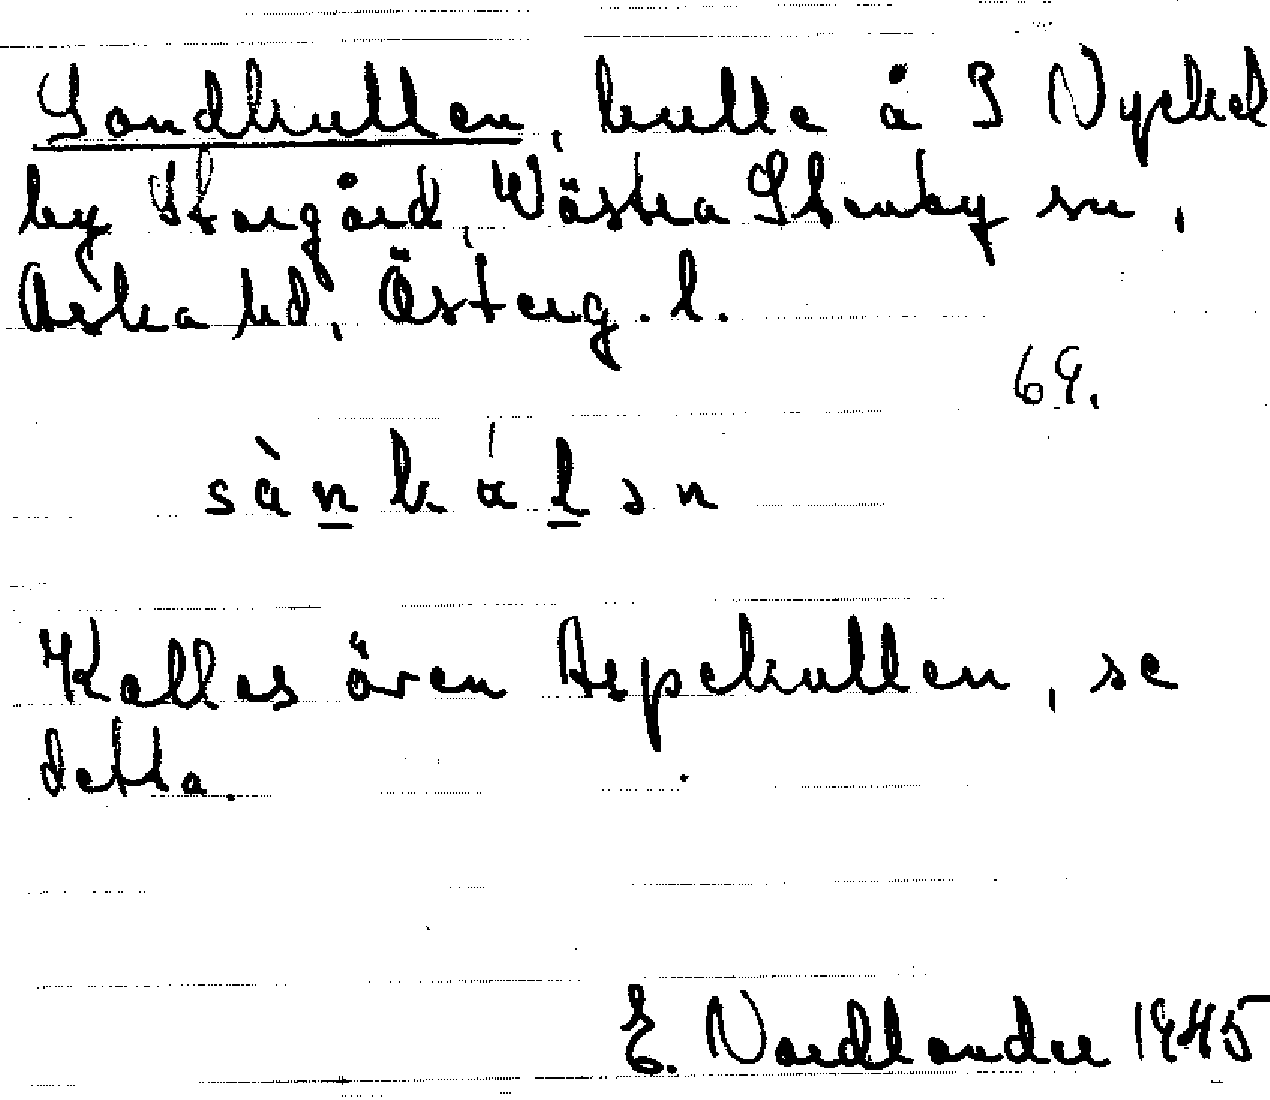 Sandkullen, kulle å 3 Nyckel
by Storgård, Västra Stenby sn,
Aska hd, Österg. l.
69.
sànkálən
Kallas även Aspekullen, se
detta.
E. Nordlander 1945